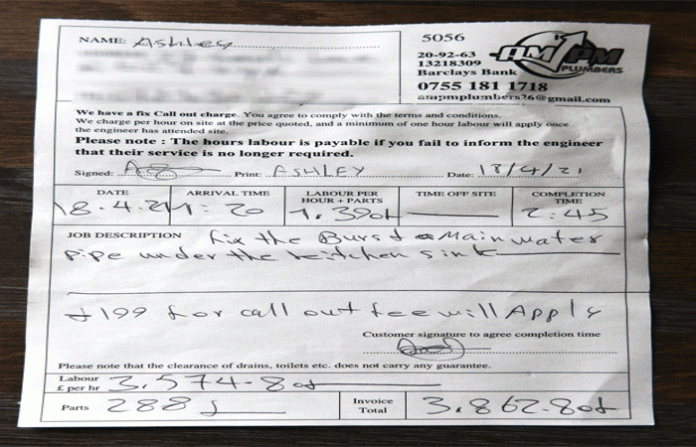 NAME: Ashley
5056
20-92-63
13218309
Barclays Bank
AM PM
PLUMBERS
0755 181 1718
ampmplumbers26@gmail.com
We have a fix Call out charge. You agree to comply with the terms and conditions.
We charge per hour on site at the price quoted, and a minimum of one hour labour will apply once
the engineer has attended site.
Please note : The hours labour is payable if you fail to inform the engineer
that their service is no longer required.
Signed: Print: ASHLEY Date: 18/4/21
DATE ARRIVAL TIME LABOUR PER HOUR + PARTS TIME OFF SITE COMPLETION TIME
18.4.21 1:20 2:45
JOB DESCRIPTION fix the Burst Main water
pipe under the kitchen sink
£199 for call out fee will Apply
Customer signature to agree completion time
Please note that the clearance of drains, toilets etc. does not carry any guarantee.
Labour £ per hr 3,574.80
Parts 288 Invoice Total 3,862.80